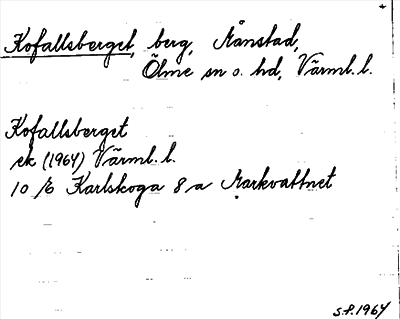 Kofallsberget, berg, Månstad,
Ölme sn o. hd, Värml. l.
Kofallsberget
ek (1964) Värml. l.
10 E Karlskoga 8 a Markvattnet
S.P. 1964